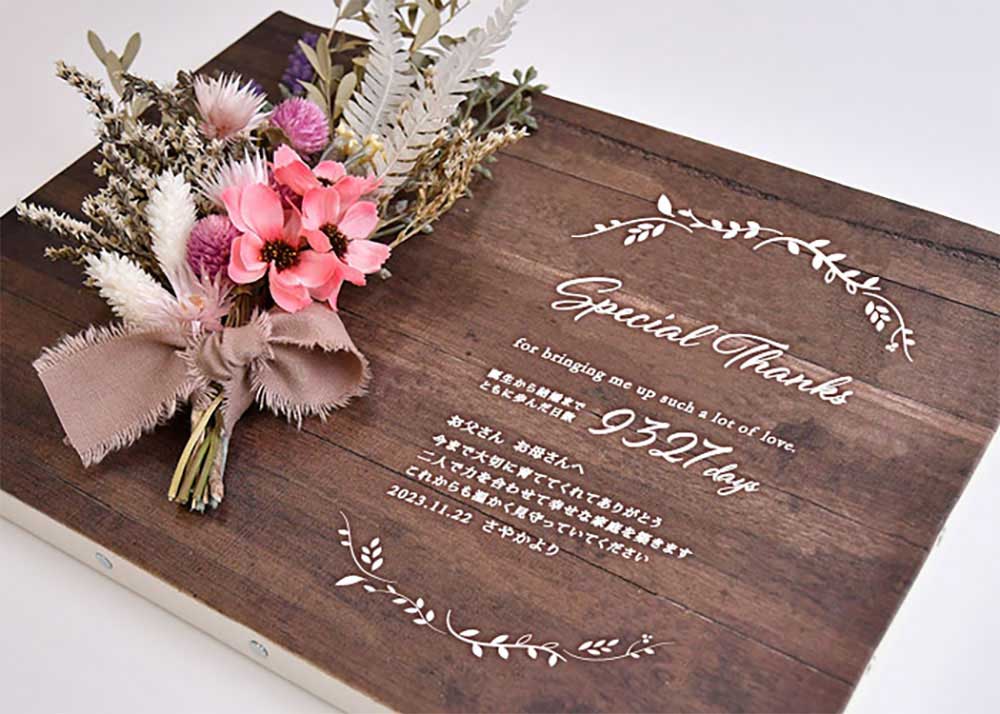 Special Thanks
for bringing me up such a lot of love.
誕生から結婚まで
ともに歩んだ日数
9327 days
お父さん お母さんへ
今まで大切に育ててくれてありがとう
二人で力を合わせて幸せな家庭を築きます
これからも温かく見守っていてください
2023.11.22 さやかより